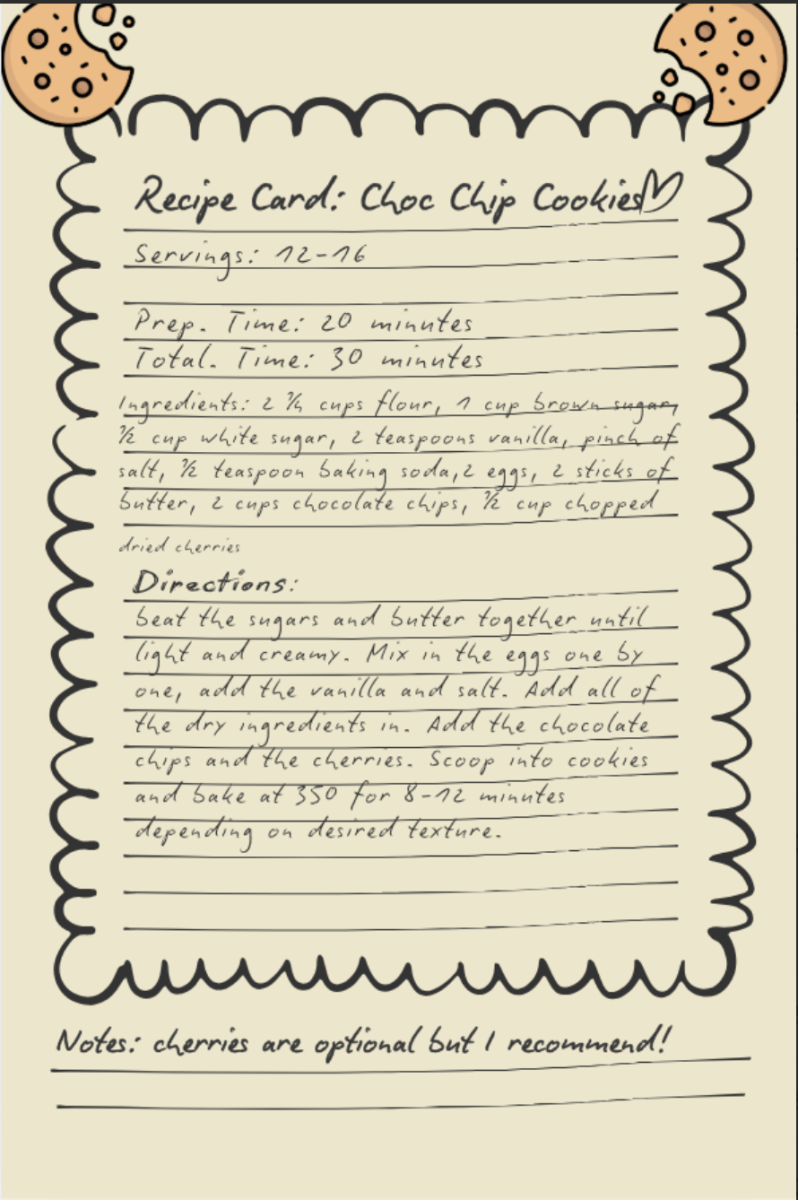 Recipe Card: Choc Chip Cookies
Servings: 12-16
Prep. Time: 20 minutes
Total. Time: 30 minutes
Ingredients: 2 ¼ cups flour, 1 cup brown sugar,
½ cup white sugar, 2 teaspoons vanilla, pinch of
salt, ½ teaspoon baking soda,2 eggs, 2 sticks of
butter, 2 cups chocolate chips, ½ cup chopped
dried cherries
Directions:
beat the sugars and butter together until
light and creamy. Mix in the eggs one by
one, add the vanilla and salt. Add all of
the dry ingredients in. Add the chocolate
chips and the cherries. Scoop into cookies
and bake at 350 for 8-12 minutes
depending on desired texture.
Notes: cherries are optional but I recommend!